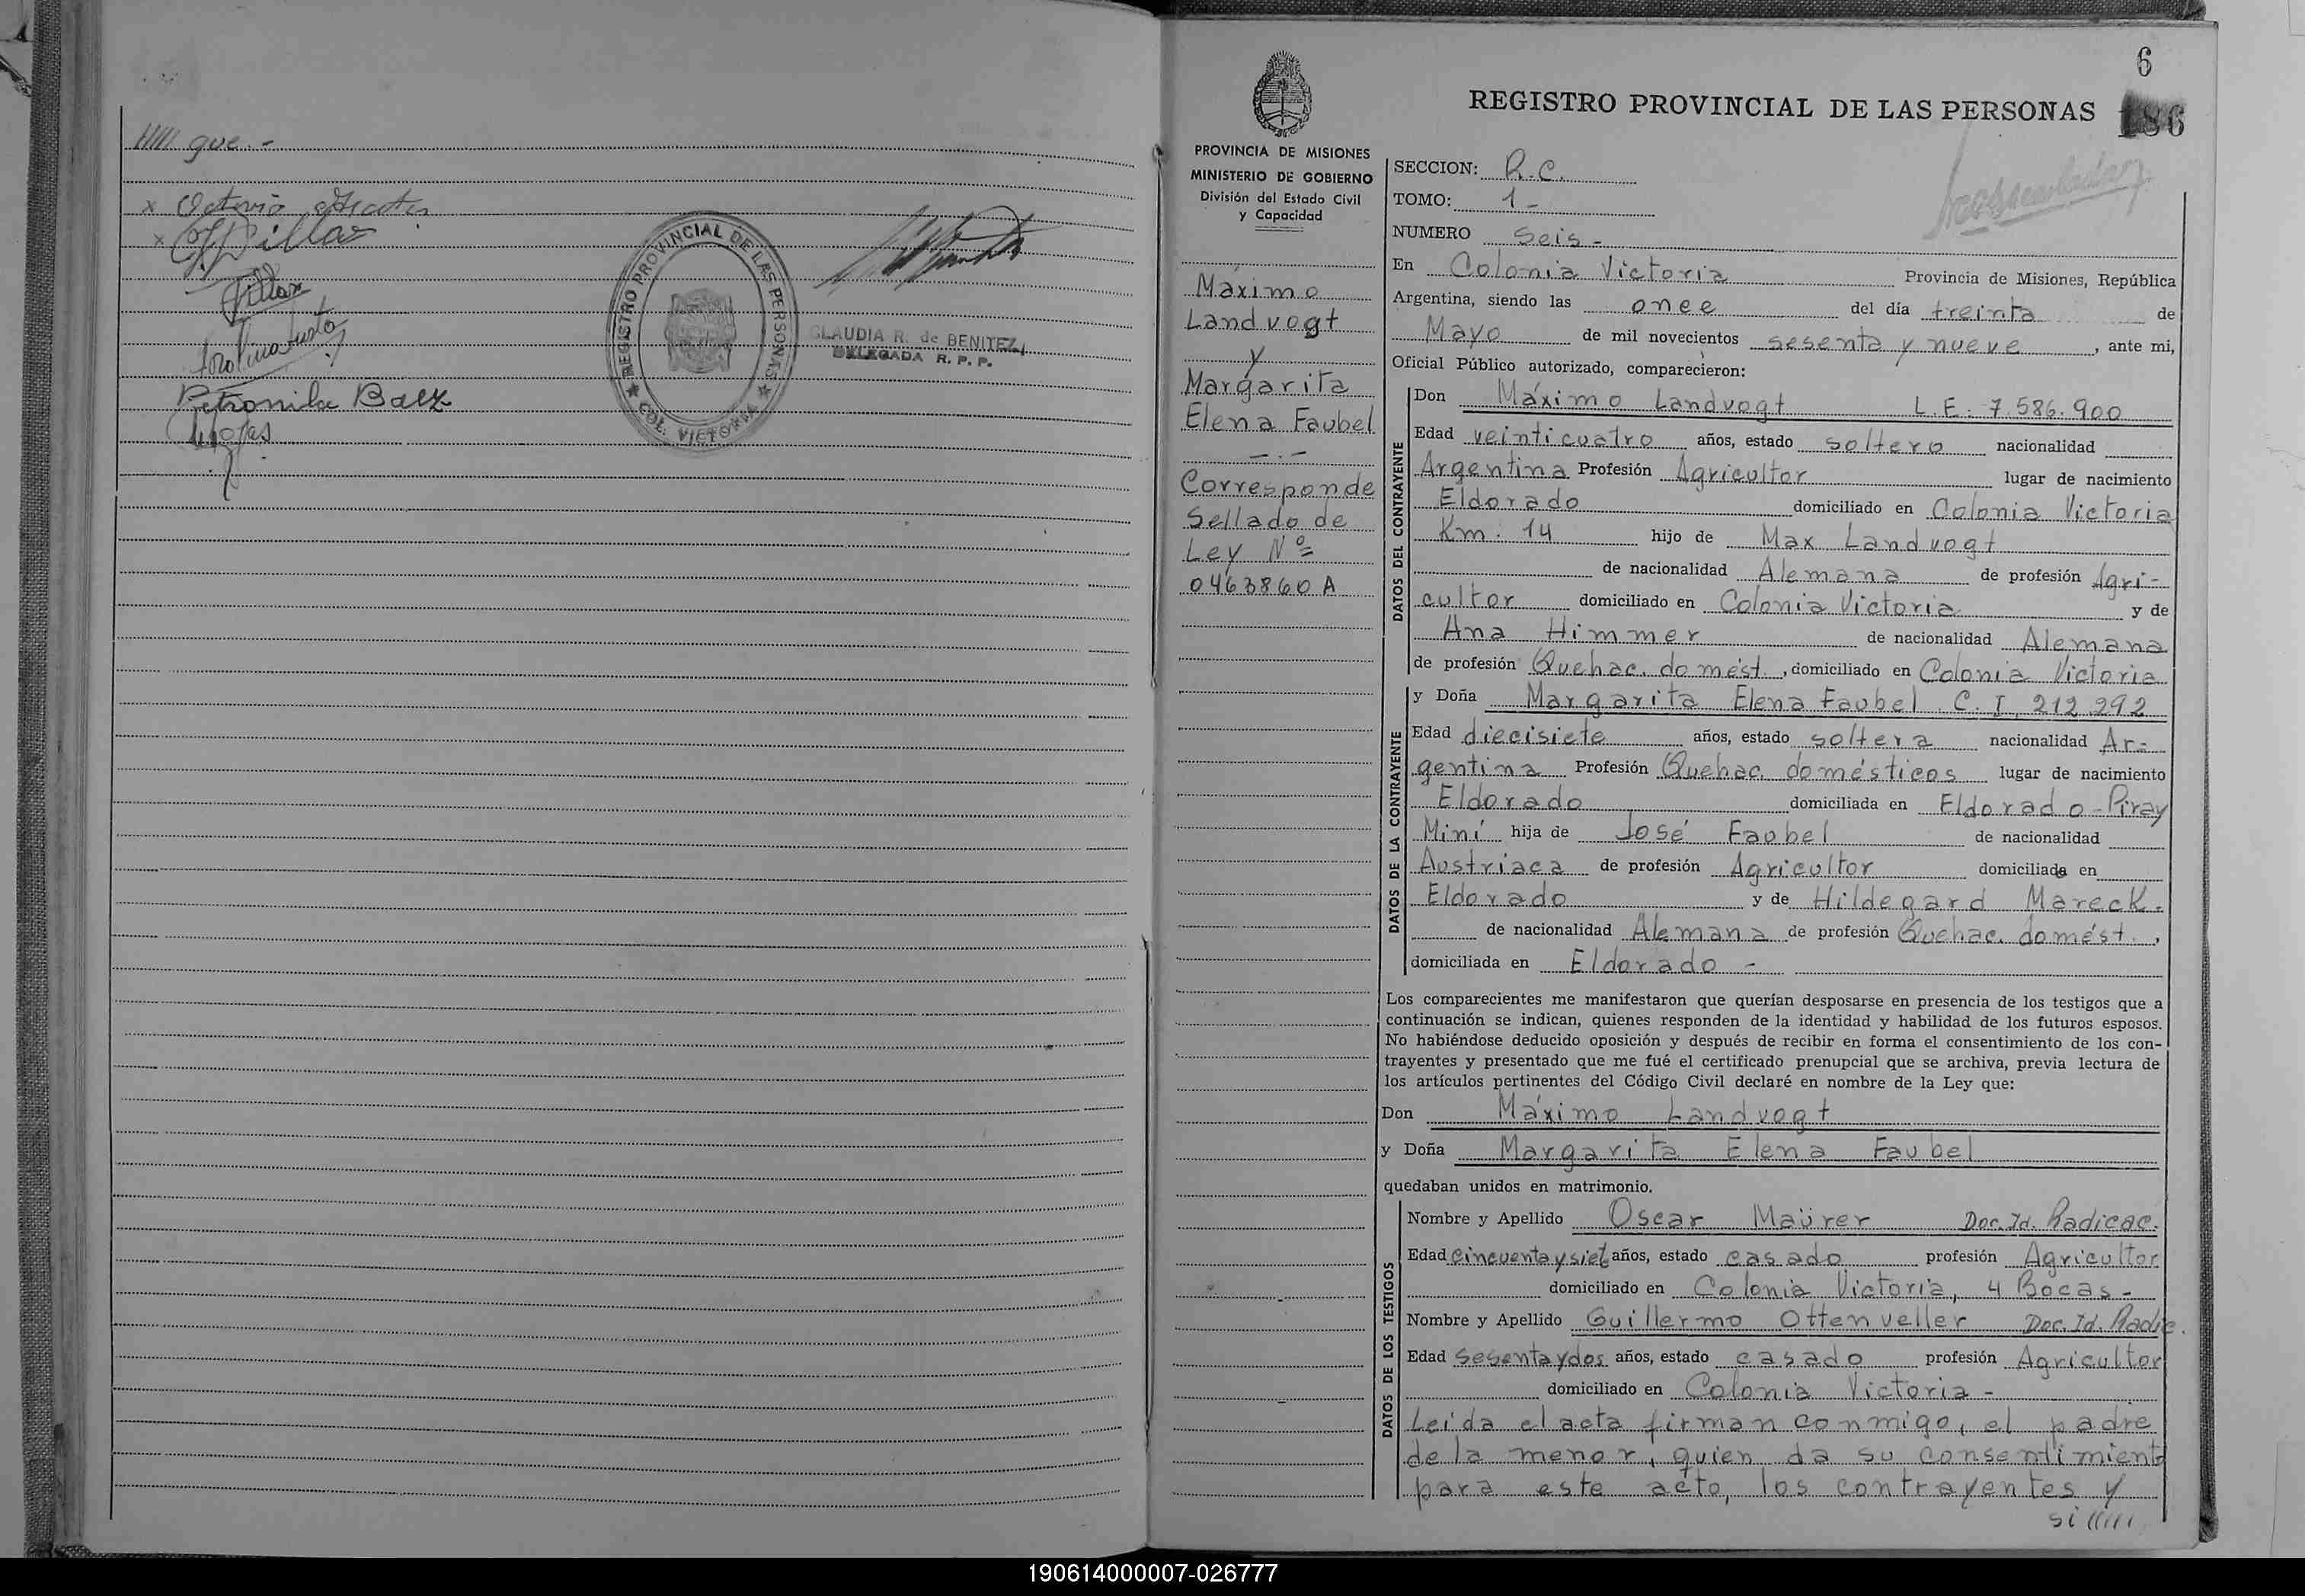 gue.-
x Octavio
x Villar
Villar
Petronila Baez
Rojas
REGISTRO PROVINCIAL DE LAS PERSONAS
★ COL. VICTORIA ★
CLAUDIA R. de BENITEZ
DELEGADA R. P. P.
6
REGISTRO PROVINCIAL DE LAS PERSONAS 186
PROVINCIA DE MISIONES
MINISTERIO DE GOBIERNO
División del Estado Civil
y Capacidad
Máximo
Landvogt
y
Margarita
Elena Faubel
-.-
Corresponde
Sellado de
Ley Nº=
0463860 A
SECCION: R.C.
TOMO: 1-
NUMERO seis-
En Colonia Victoria Provincia de Misiones, República
Argentina, siendo las once del día treinta de
Mayo de mil novecientos sesenta y nueve, ante mi,
Oficial Público autorizado, comparecieron:
DATOS DEL CONTRAYENTE
Don Máximo Landvogt L.E: 7.586.900
Edad veinticuatro años, estado soltero nacionalidad
Argentina Profesión Agricultor lugar de nacimiento
Eldorado domiciliado en Colonia Victoria
Km. 14 hijo de Max Landvogt
de nacionalidad Alemana de profesión Agri-
cultor domiciliado en Colonia Victoria y de
Ana Himmer de nacionalidad Alemana
de profesión Quehac. domést., domiciliado en Colonia Victoria
DATOS DE LA CONTRAYENTE
y Doña Margarita Elena Faubel C. I. 212.292
Edad diecisiete años, estado soltera nacionalidad Ar-
gentina Profesión Quehac. domésticos lugar de nacimiento
Eldorado domiciliada en Eldorado-Piray
Miní hija de José Faubel de nacionalidad
Austriaca de profesión Agricultor domiciliada en
Eldorado y de Hildegard Mareck-
de nacionalidad Alemana de profesión Quehac. domést.,
domiciliada en Eldorado -
Los comparecientes me manifestaron que querían desposarse en presencia de los testigos que a
continuación se indican, quienes responden de la identidad y habilidad de los futuros esposos.
No habiéndose deducido oposición y después de recibir en forma el consentimiento de los con-
trayentes y presentado que me fué el certificado prenupcial que se archiva, previa lectura de
los artículos pertinentes del Código Civil declaré en nombre de la Ley que:
Don Máximo Landvogt
y Doña Margarita Elena Faubel
quedaban unidos en matrimonio.
DATOS DE LOS TESTIGOS
Nombre y Apellido Oscar Maürer Doc. Id. Radicac.
Edad cincuenta y siete años, estado casado profesión Agricultor
domiciliado en Colonia Victoria, 4 Bocas-
Nombre y Apellido Guillermo Ottenveller Doc. Id. Radic.
Edad sesenta y dos años, estado casado profesión Agricultor
domiciliado en Colonia Victoria-
Leída el acta firman conmigo, el padre
de la menor, quien da su consentimiento
para este acto, los contrayentes y
si
190614000007-026777